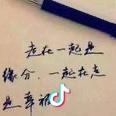 走在一起是
缘分，一起在走
是幸福